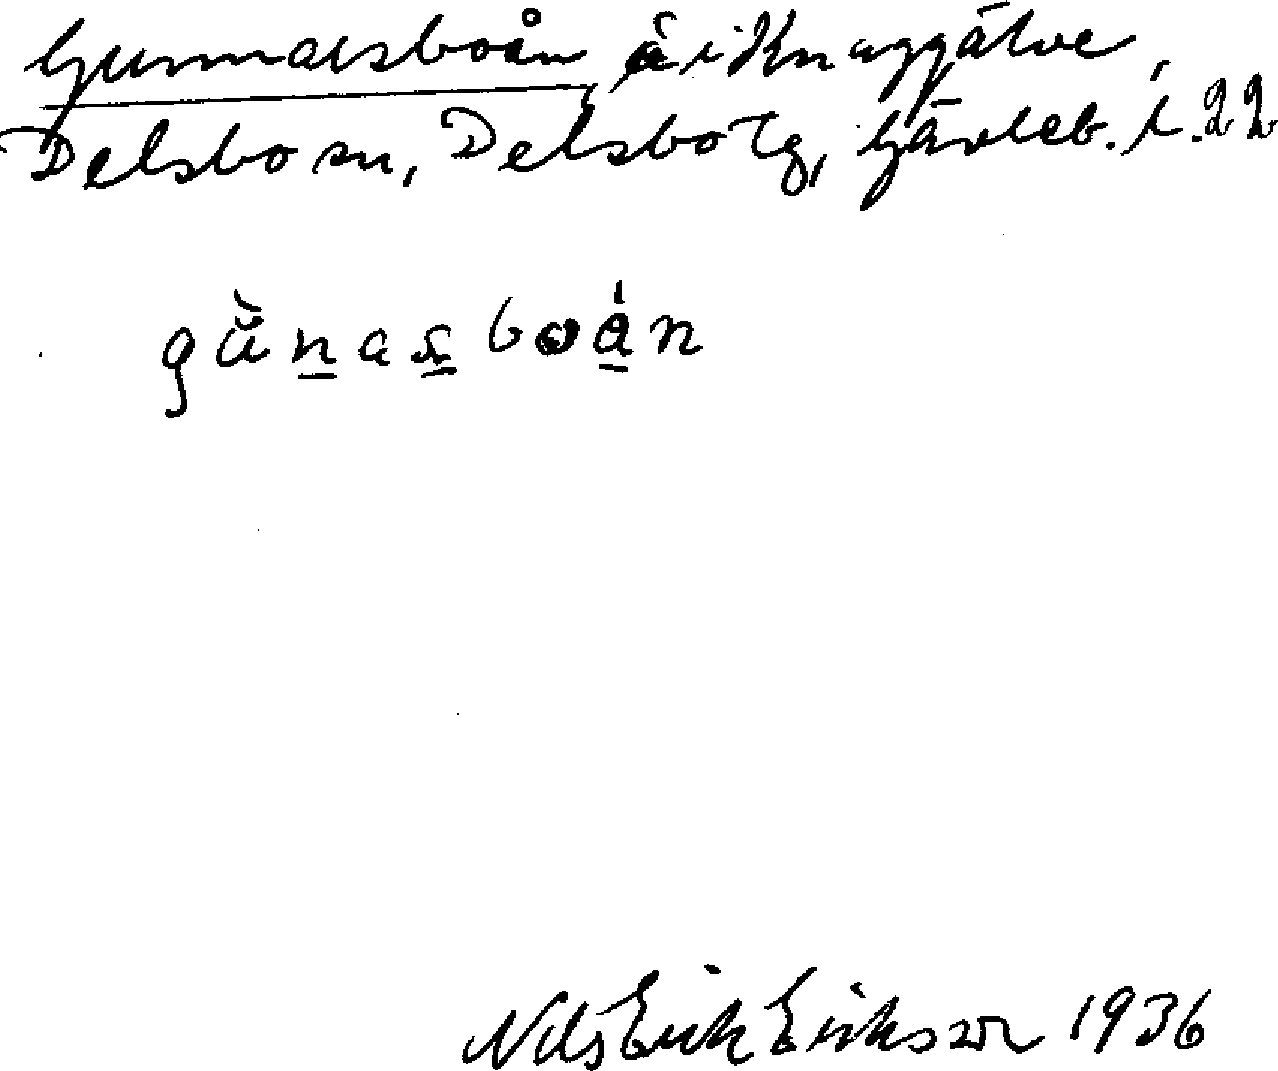 Gunnarsboån, å i Knaggälve,
Delsbo sn, Delsbo tg, Gävleb. l. 22
gǜnas̲boá̲n
Nils Erik Eriksson 1936